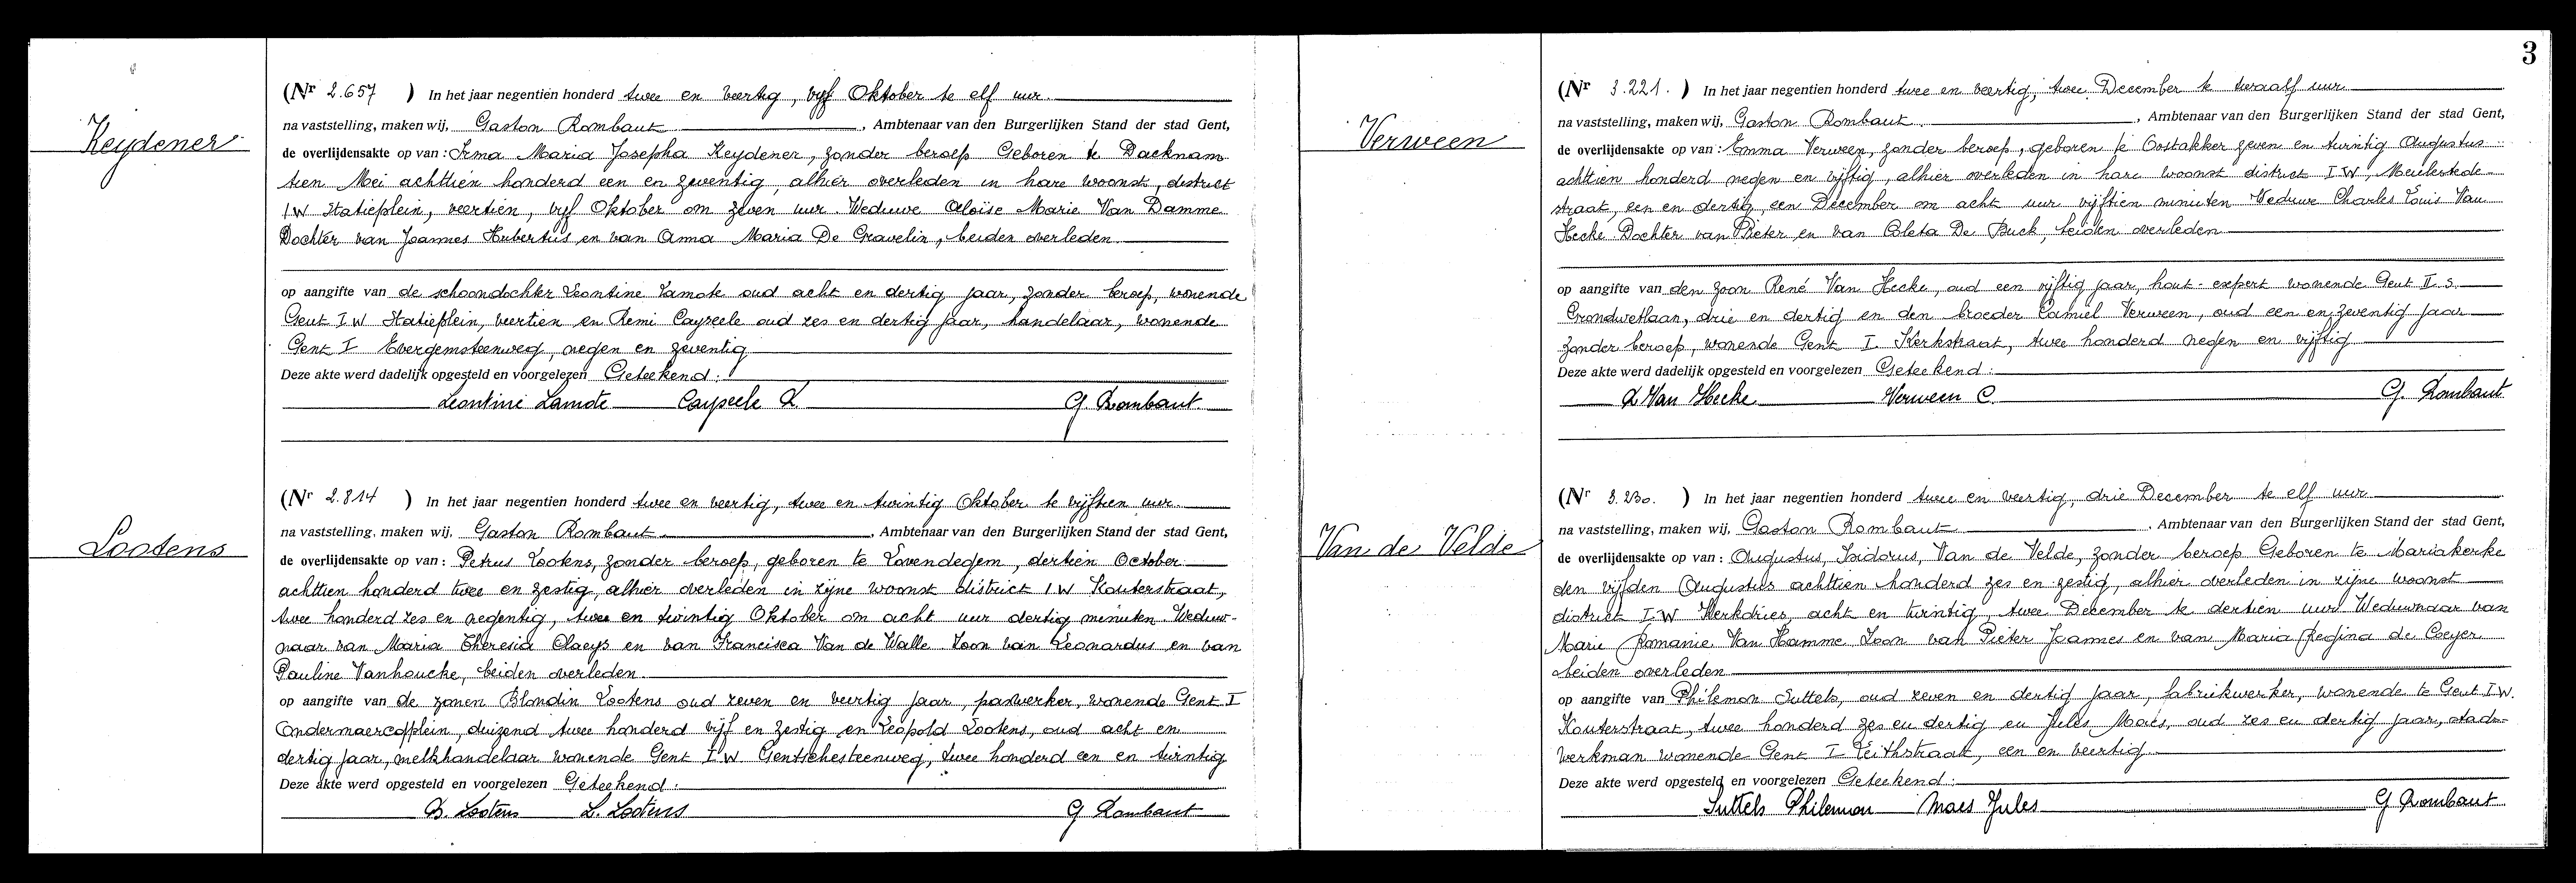 3
Keydener
(Nr 2.657 ) In het jaar negentien honderd twee en veertig, vijf Oktober te elf uur.
na vaststelling, maken wij, Gaston Rombaut, Ambtenaar van den Burgerlijken Stand der stad Gent,
de overlijdensakte op van : Irma Maria Josepha Keydener, zonder beroep Geboren te Dacknam
tien Mei achttien honderd een en zeventig, alhier overleden in hare woonst, district
I W Statieplein, veertien, vijf Oktober om zeven uur. Weduwe Aloïse Marie Van Damme
Dochter van Joannes Hubertus en van Anna Maria De Gravelin, beiden overleden.
op aangifte van de schoondochter Leontine Lamote oud acht en dertig jaar, zonder beroep, wonende
Gent I W Statieplein, veertien en Remi Cayseele oud zes en dertig jaar, handelaar, wonende
Gent I Evergemsteenweg, negen en zeventig
Deze akte werd dadelijk opgesteld en voorgelezen Geteekend :
Leontine Lamote Cayseele R. G. Rombaut
Lootens
(Nr 2.814 ) In het jaar negentien honderd twee en veertig, twee en twintig Oktober te vijftien uur.
na vaststelling, maken wij, Gaston Rombaut, Ambtenaar van den Burgerlijken Stand der stad Gent,
de overlijdensakte op van : Petrus Lootens, zonder beroep, geboren te Lovendegem, dertien October
achttien honderd twee en zestig, alhier overleden in zijne woonst district I W Kouterstraat,
twee honderd zes en negentig, twee en twintig Oktober om acht uur dertig minuten. Weduw-
naar van Maria Theresia Claeys en van Francisca Van de Walle Zoon van Leonardus en van
Pauline Vanhoucke, beiden overleden.
op aangifte van de zonen Blondin Lootens oud zeven en veertig jaar, paswerker, wonende Gent I
duizend twee honderd vijf en zestig en Leopold Lootens, oud acht en
dertig jaar, melkhandelaar wonende Gent I W Gentschesteenweg, twee honderd een en twintig
Deze akte werd opgesteld en voorgelezen Geteekend :
B. Lootens L. Lootens G Rombaut
Verween
(Nr 3.221. ) In het jaar negentien honderd twee en veertig, twee December te twaalf uur
na vaststelling, maken wij, Gaston Rombaut, Ambtenaar van den Burgerlijken Stand der stad Gent,
de overlijdensakte op van : Emma Verween, zonder beroep, geboren te Oostakker zeven en twintig Augustus
achttien honderd negen en vijftig, alhier overleden in hare woonst district I W, Meulestede-
straat, een en dertig, een December om acht uur vijftien minuten Weduwe Charles Louis Van
Hecke Dochter van Pieter en van Coleta De Buck, beiden overleden
op aangifte van den zoon René Van Hecke, oud een vijftig jaar, hout-expert wonende Gent II S.
Grondwetlaan, drie en dertig en den broeder Camiel Verween, oud een en zeventig jaar
zonder beroep, wonende Gent I. Kerkstraat, twee honderd negen en vijftig
Deze akte werd dadelijk opgesteld en voorgelezen Geteekend :
R Van Hecke Verween C. G. Rombaut
Van de Velde
(Nr 3.230. ) In het jaar negentien honderd twee en veertig, drie December te elf uur
na vaststelling, maken wij, Gaston Rombaut, Ambtenaar van den Burgerlijken Stand der stad Gent,
de overlijdensakte op van : Augustus, Isidorus, Van de Velde, zonder beroep Geboren te Mariakerke
den vijfden Augustus achttien honderd zes en zestig, alhier overleden in zijne woonst
district I W Kerkdries, acht en twintig twee December te dertien uur Weduwnaar van
Marie Romanie Van Hamme Zoon van Pieter Joannes en van Maria Regina de Coeyer
beiden overleden
op aangifte van Philemon Suttels, oud zeven en dertig jaar, fabriekwerker, wonende te Gent I W.
Kouterstraat, twee honderd zes en dertig en Jules Maes, oud zes en dertig jaar, stads-
werkman wonende Gent I Leithstraat, een en veertig
Deze akte werd opgesteld en voorgelezen Geteekend :
Suttels Philemon Maes Jules G Rombaut